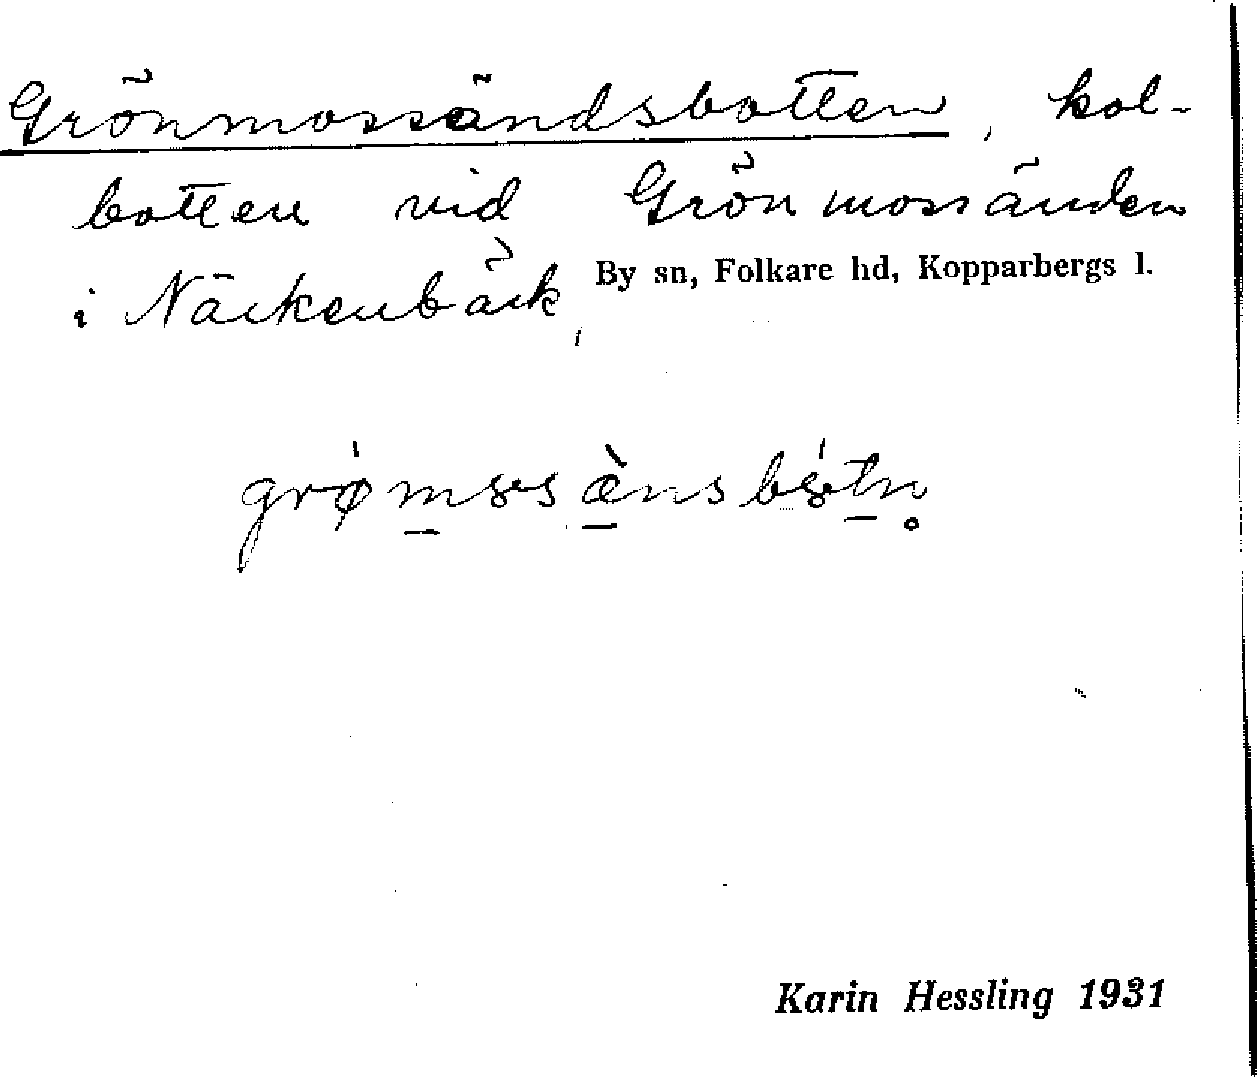 Grönmossändsbotten, kol-
botten vid Grönmossänden
i Näckenbäck,
By sn, Folkare hd, Kopparbergs l.
Karin Hessling 1931